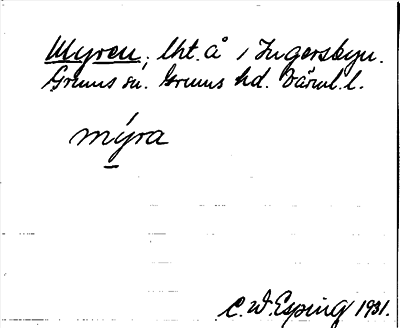 Myren, lht. å i Ingersbyn.
Grums sn. Grums hd. Värml. l.
mýra
C. W. Esping 1931.